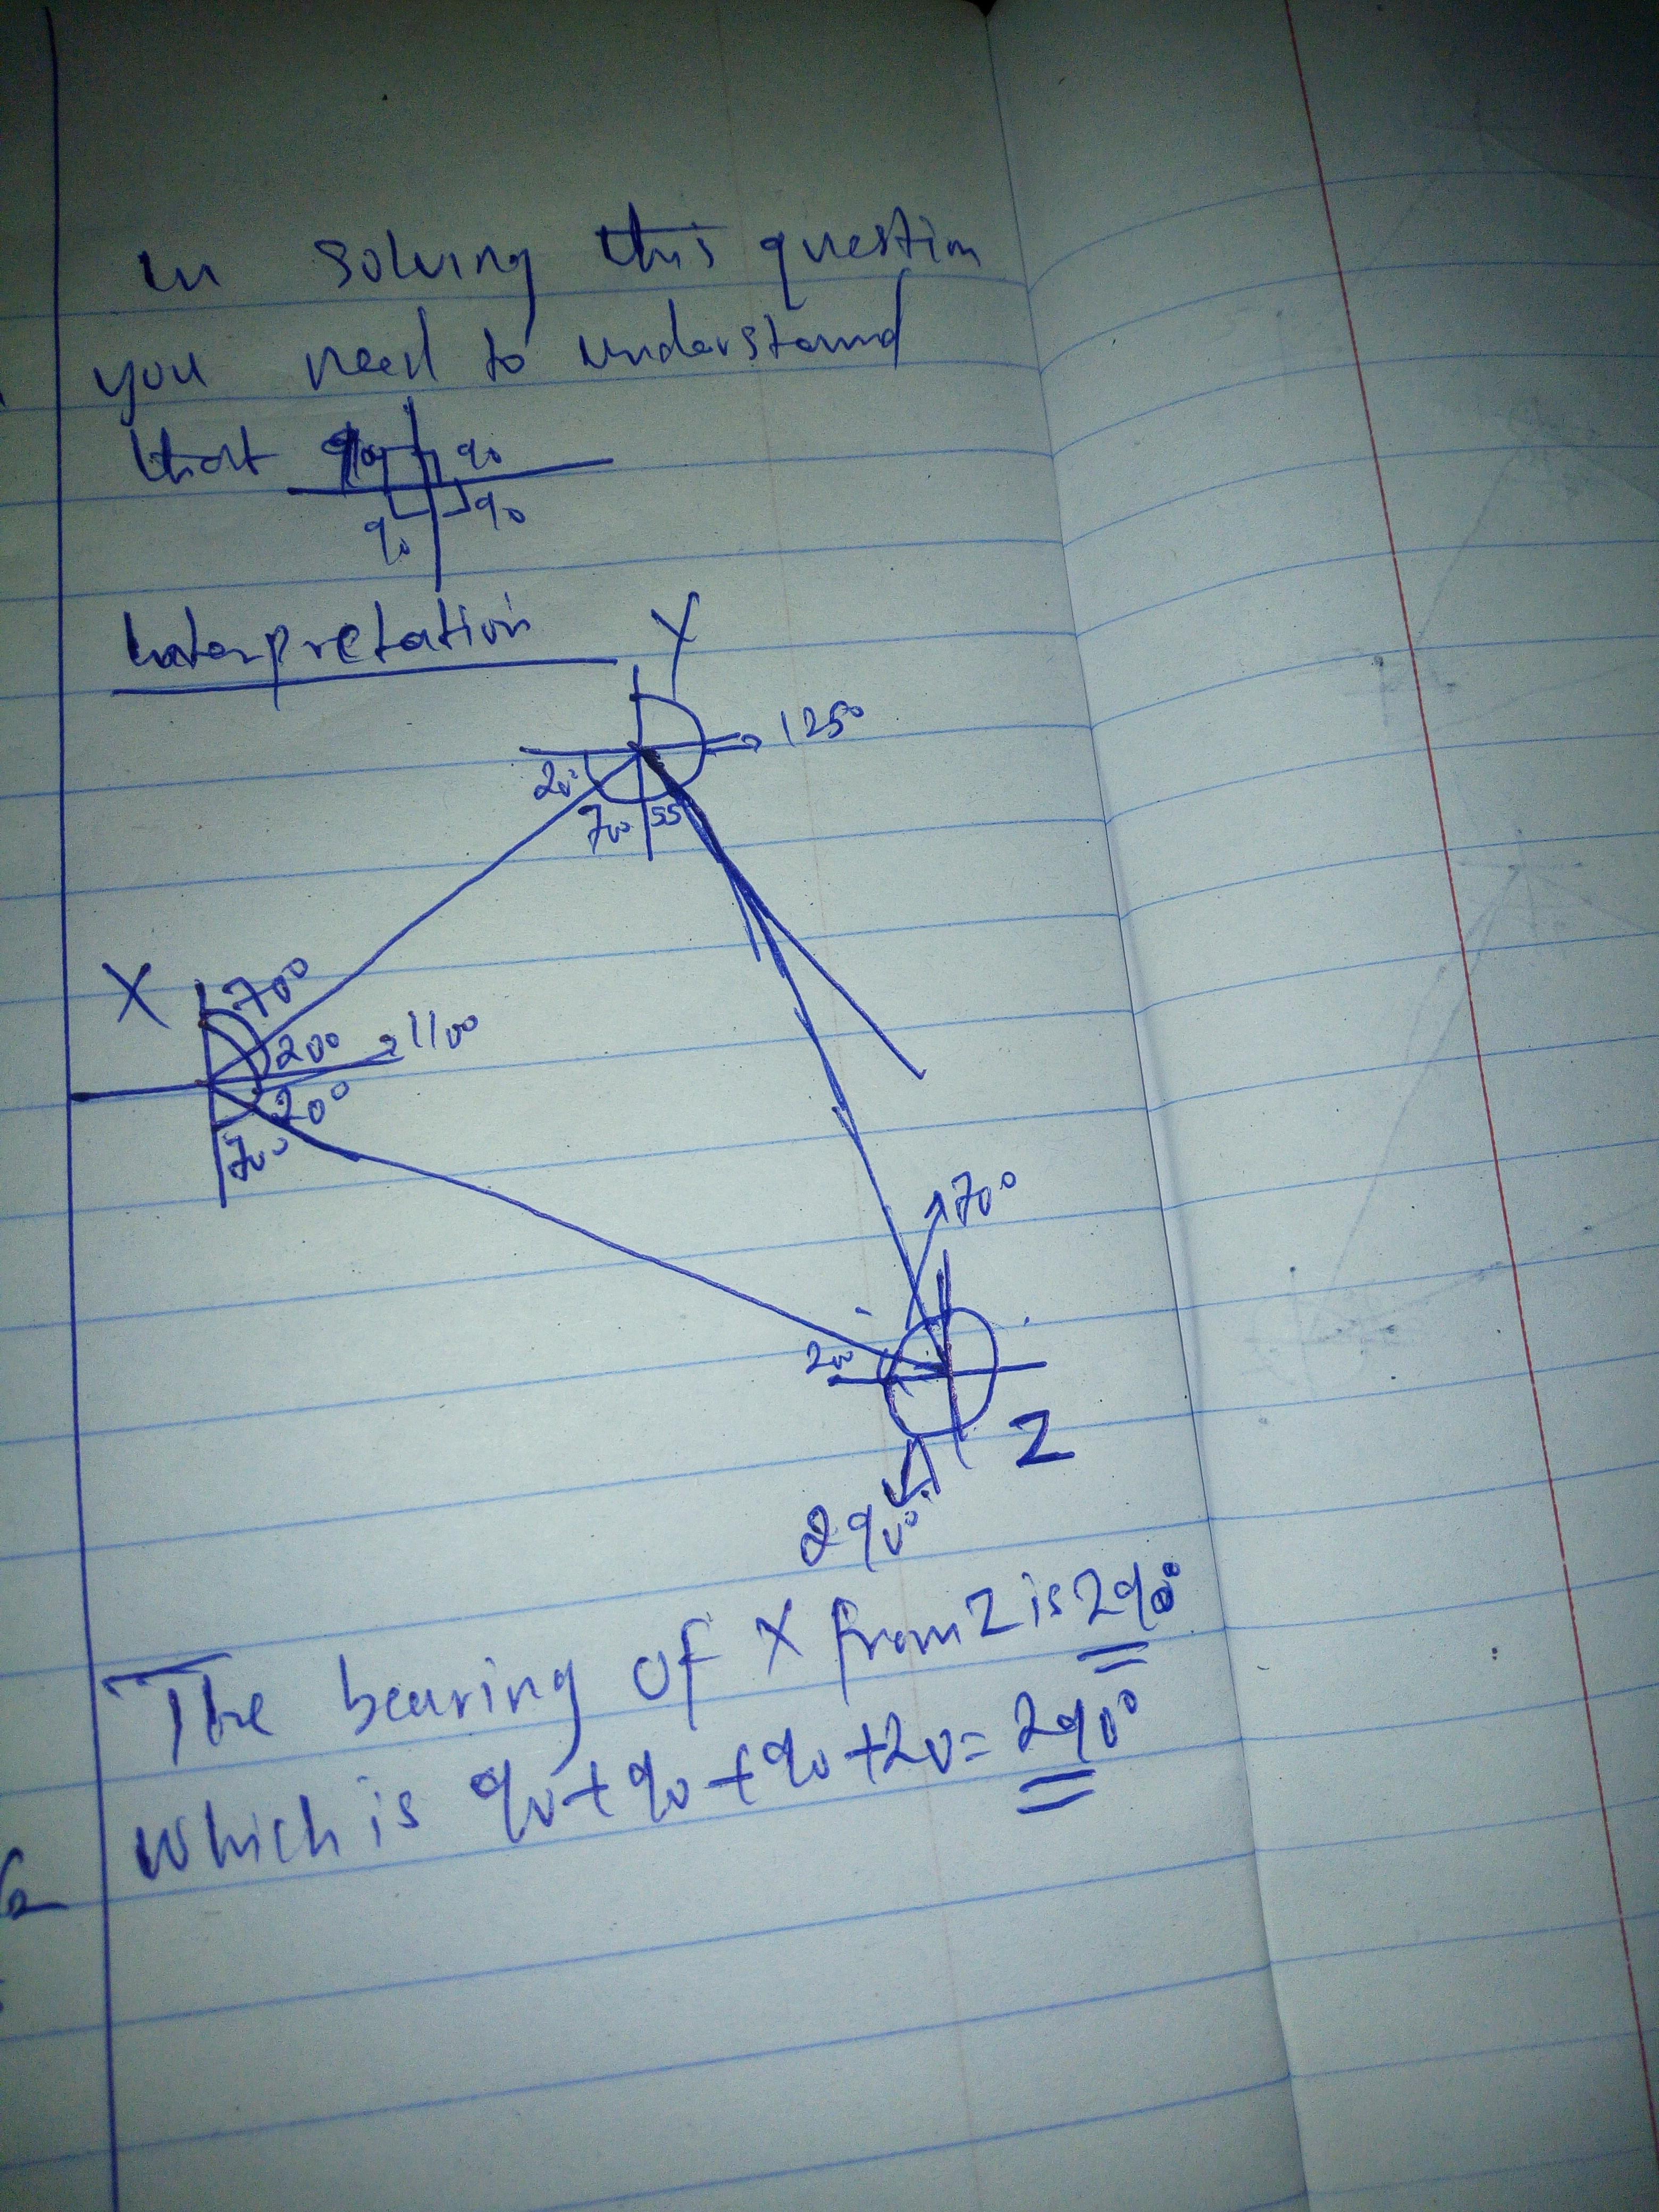 In solving this question
you need to understand
that 90 90
90 90
Interpretation
Y
125°
20°
70° 55
X
70°
20° 110°
20°
70°
70°
20°
Z
290°
The bearing of X from Z is 290°
which is 90+90+90+20=290°